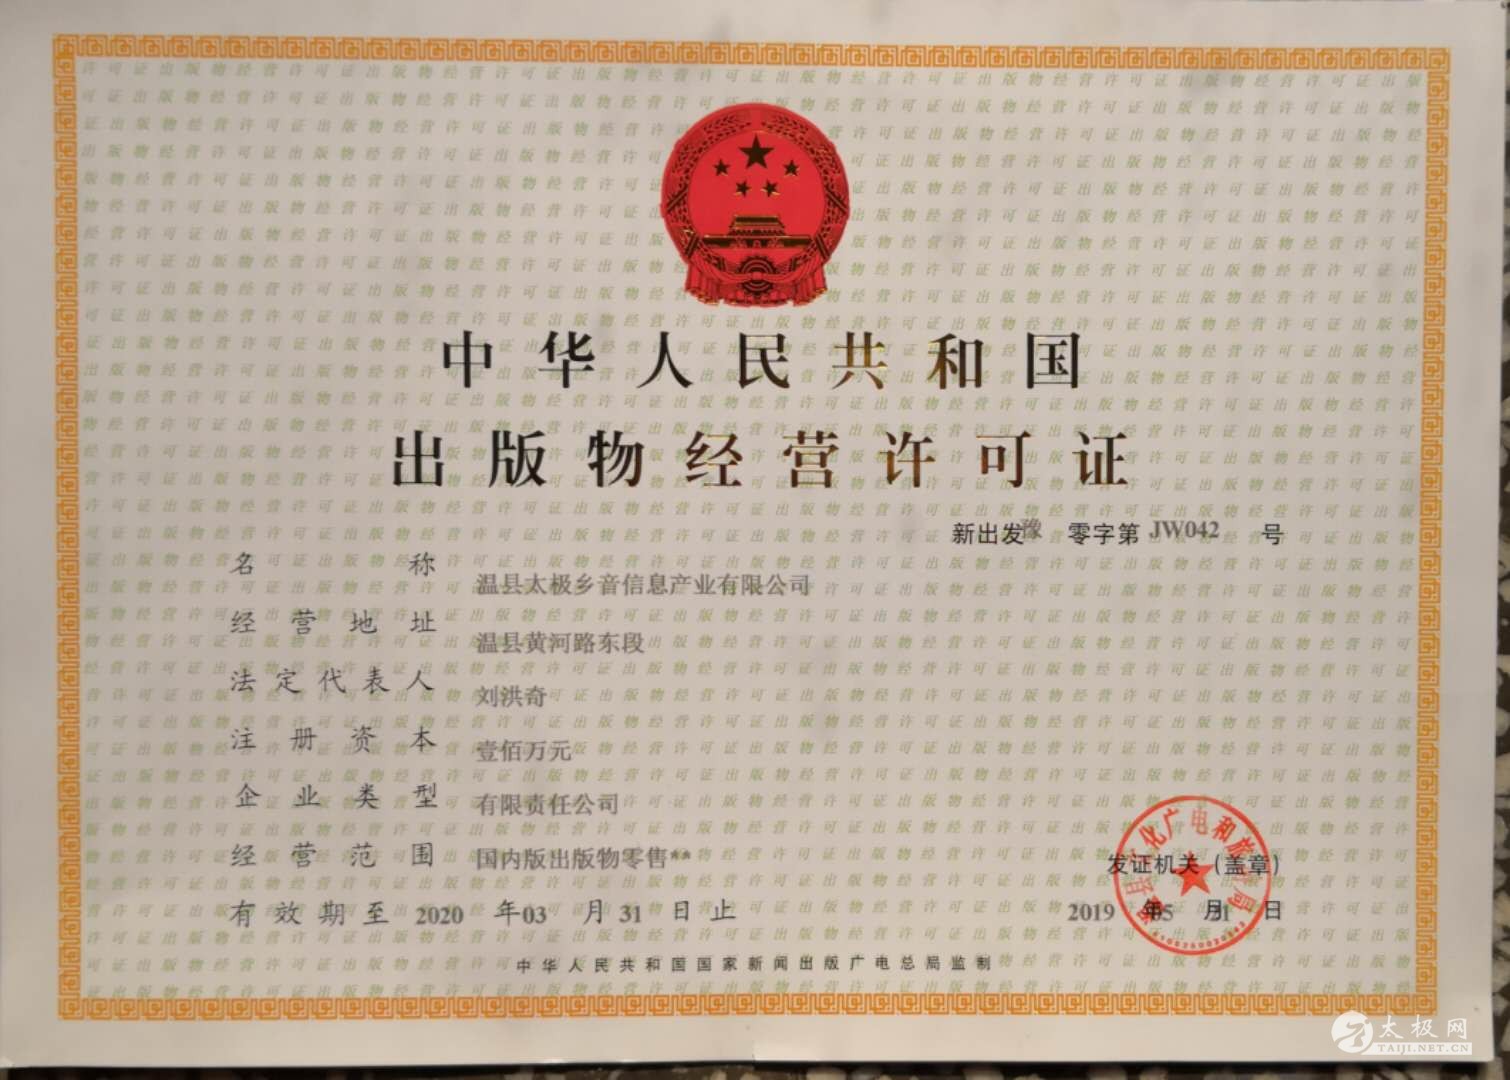 中华人民共和国
出版物经营许可证
新出发豫 零字第 JW042 号
名称 温县太极乡音信息产业有限公司
经营地址 温县黄河路东段
法定代表人 刘洪奇
注册资本 壹佰万元
企业类型 有限责任公司
经营范围 国内版出版物零售**
发证机关（盖章）
有效期至 2020 年 03 月 31 日止
2019 年 5 月 31 日
中华人民共和国国家新闻出版广电总局监制
太极网
TAIJI.NET.CN